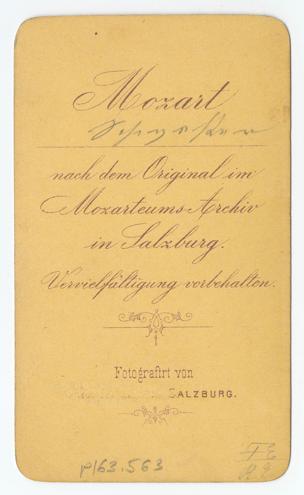 Mozart
nach dem Original im
Mozarteums-Archiv
in Salzburg.
Vervielfältigung vorbehalten.
Fotografirt von
SALZBURG.
p163.563